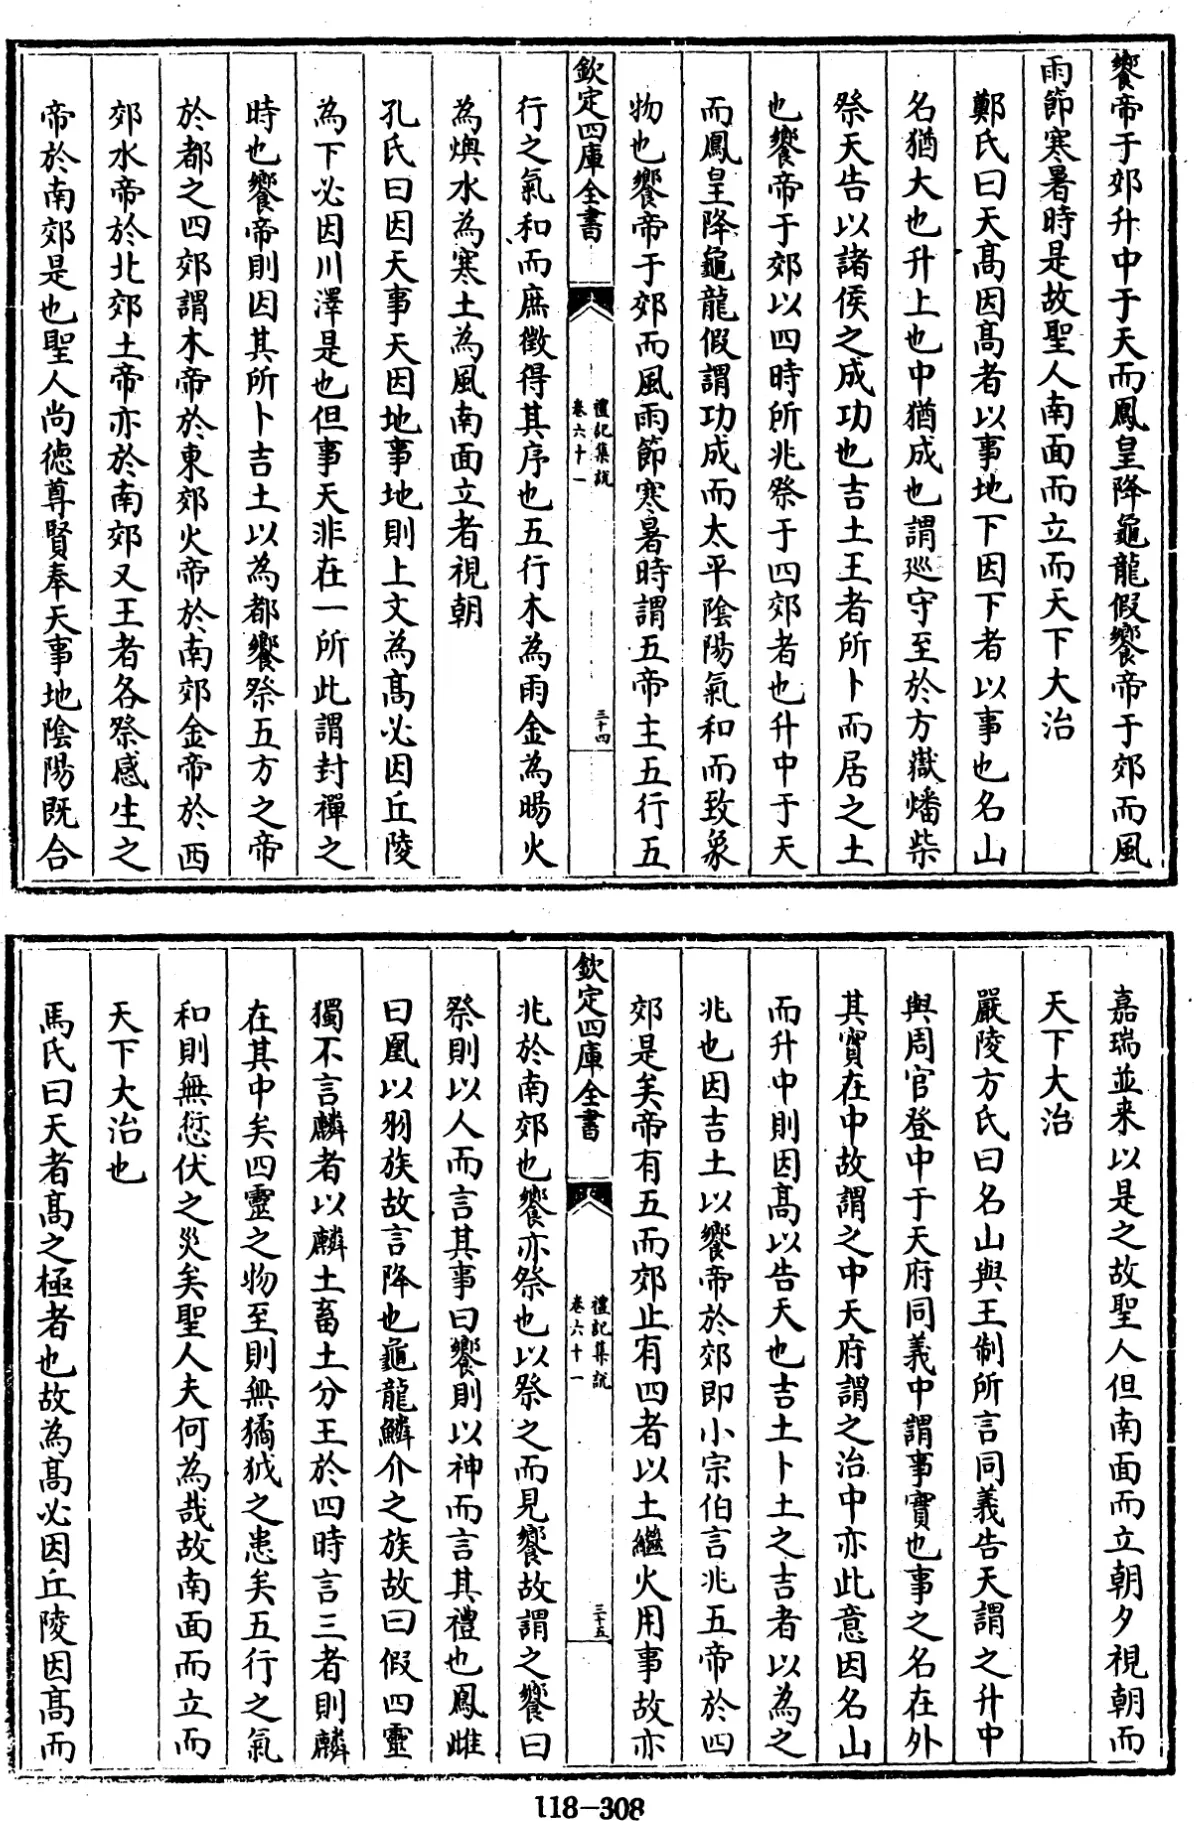 饗帝于郊升中于天而鳳皇降龜龍假饗帝于郊而風
雨節寒暑時是故聖人南面而立而天下大治
鄭氏曰天髙因髙者以事地下因下者以事也名山
名猶大也升上也中猶成也謂廵守至於方嶽燔柴
祭天告以諸侯之成功也吉土王者所卜而居之土
也饗帝于郊以四時所兆祭于四郊者也升中于天
而鳳皇降龜龍假謂功成而太平陰陽氣和而致象
物也饗帝于郊而風雨節寒暑時謂五帝主五行五
欽定四庫全書
禮記集說
卷六十一
三十四
行之氣和而庶徴得其序也五行木為雨金為暘火
為燠水為寒土為風南面立者視朝
孔氏曰因天事天因地事地則上文為髙必因丘陵
為下必因川澤是也但事天非在一所此謂封禪之
時也饗帝則因其所卜吉土以為都饗祭五方之帝
於都之四郊謂木帝於東郊火帝於南郊金帝於西
郊水帝於北郊土帝亦於南郊又王者各祭感生之
帝於南郊是也聖人尚徳尊賢奉天事地陰陽既合
嘉瑞並来以是之故聖人但南面而立朝夕視朝而
天下大治
嚴陵方氏曰名山與王制所言同義告天謂之升中
與周官登中于天府同義中謂事實也事之名在外
其實在中故謂之中天府謂之治中亦此意因名山
而升中則因髙以告天也吉土卜土之吉者以為之
兆也因吉土以饗帝於郊即小宗伯言兆五帝於四
郊是矣帝有五而郊止有四者以土繼火用事故亦
欽定四庫全書
禮記集說
卷六十一
三十五
兆於南郊也饗亦祭也以祭之而見饗故謂之饗曰
祭則以人而言其事曰饗則以神而言其禮也鳳雌
曰凰以羽族故言降也龜龍鱗介之族故曰假四靈
獨不言麟者以麟土畜土分王於四時言三者則麟
在其中矣四靈之物至則無獝狘之患矣五行之氣
和則無愆伏之災矣聖人夫何為哉故南面而立而
天下大治也
馬氏曰天者髙之極者也故為髙必因丘陵因髙而
118-308